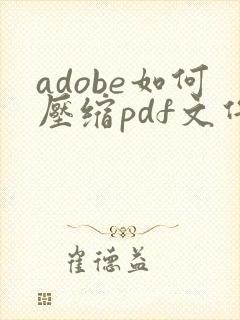 adobe如何
壓缩pdf文
崔德益